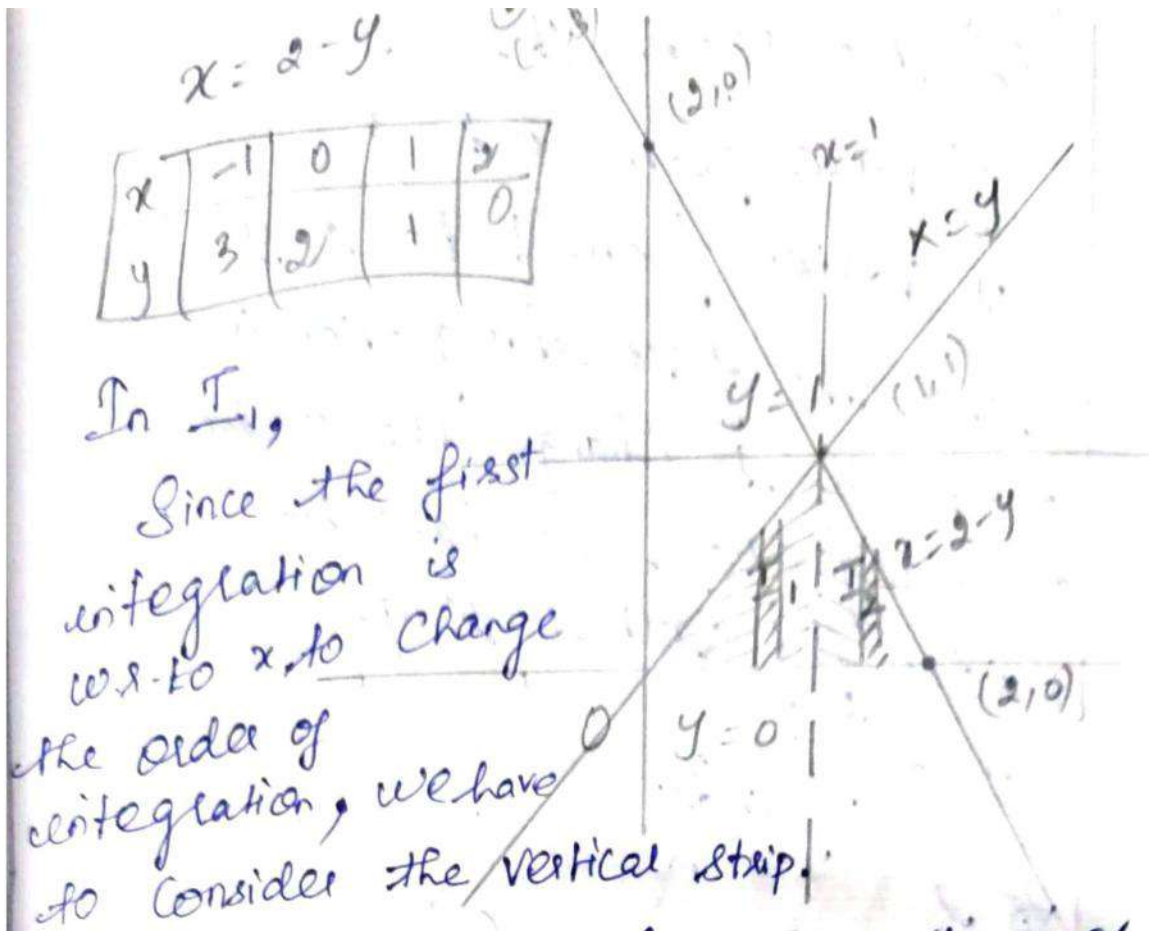 x = 2 - y.
x -1 0 1 2
y 3 2 1 0
(2,0)
x=1
x=y
y=1
(1,1)
In I1,
Since the first
integration is
w.r.to x, to change
the order of
integration, we have
to consider the vertical strip.
I1
I2
x=2-y
(2,0)
y=0
O